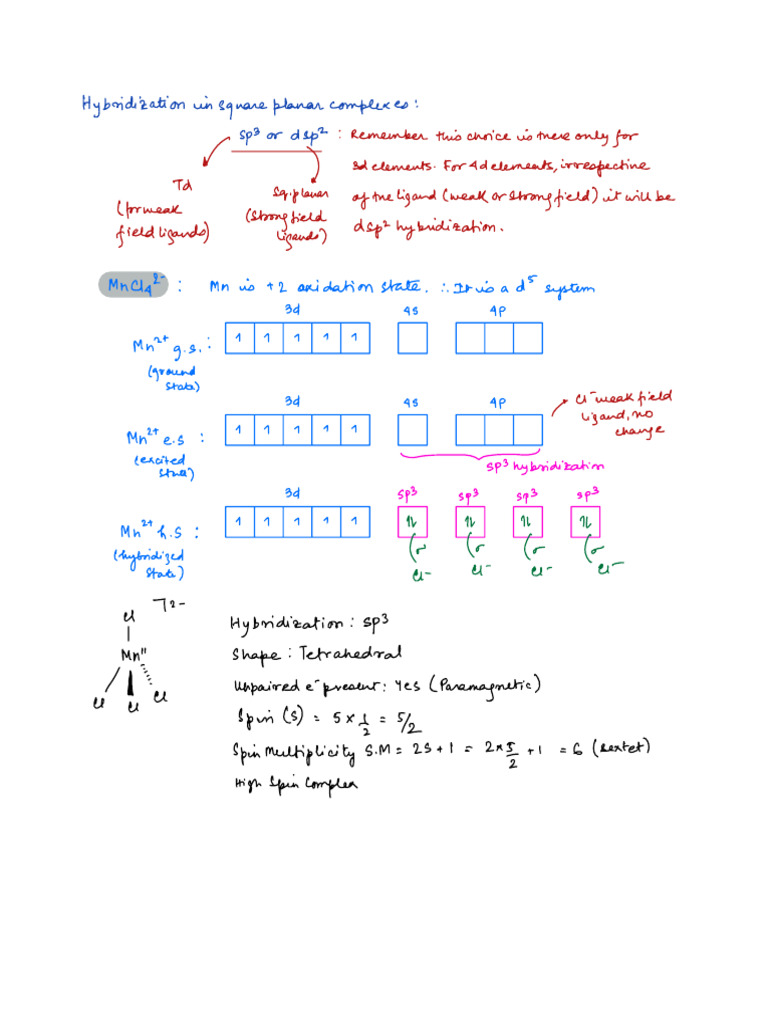 Hybridization in square planar complexes:
sp³ or dsp² : Remember this choice is there only for
3d elements. For 4d elements, irrespective
of the ligand (weak or strong field) it will be
dsp² hybridization.
Td
(for weak
field ligands)
Sq. planar
(strong field
ligands)
MnCl₄²⁻ : Mn is +2 oxidation state. ∴ It is a d⁵ system
3d 4s 4p
Mn²⁺ g.s. : 1 1 1 1 1
(ground
state)
3d 4s 4p
Mn²⁺ e.s : 1 1 1 1 1
(excited
state)
Cl⁻ weak field
ligand, no
change
sp³ hybridization
3d sp³ sp³ sp³ sp³
Mn²⁺ h.s : 1 1 1 1 1 ⥮ ⥮ ⥮ ⥮
(hybridized
state)
σ σ σ σ
Cl⁻ Cl⁻ Cl⁻ Cl⁻
Cl ⁊2-
Mnᴵᴵ
Cl Cl Cl
Hybridization : sp³
Shape : Tetrahedral
Unpaired e⁻ present : Yes (Paramagnetic)
Spin (s) = 5 × 1/2 = 5/2
Spin Multiplicity S.M = 2S + 1 = 2 × 5/2 + 1 = 6 (sextet)
High Spin Complex